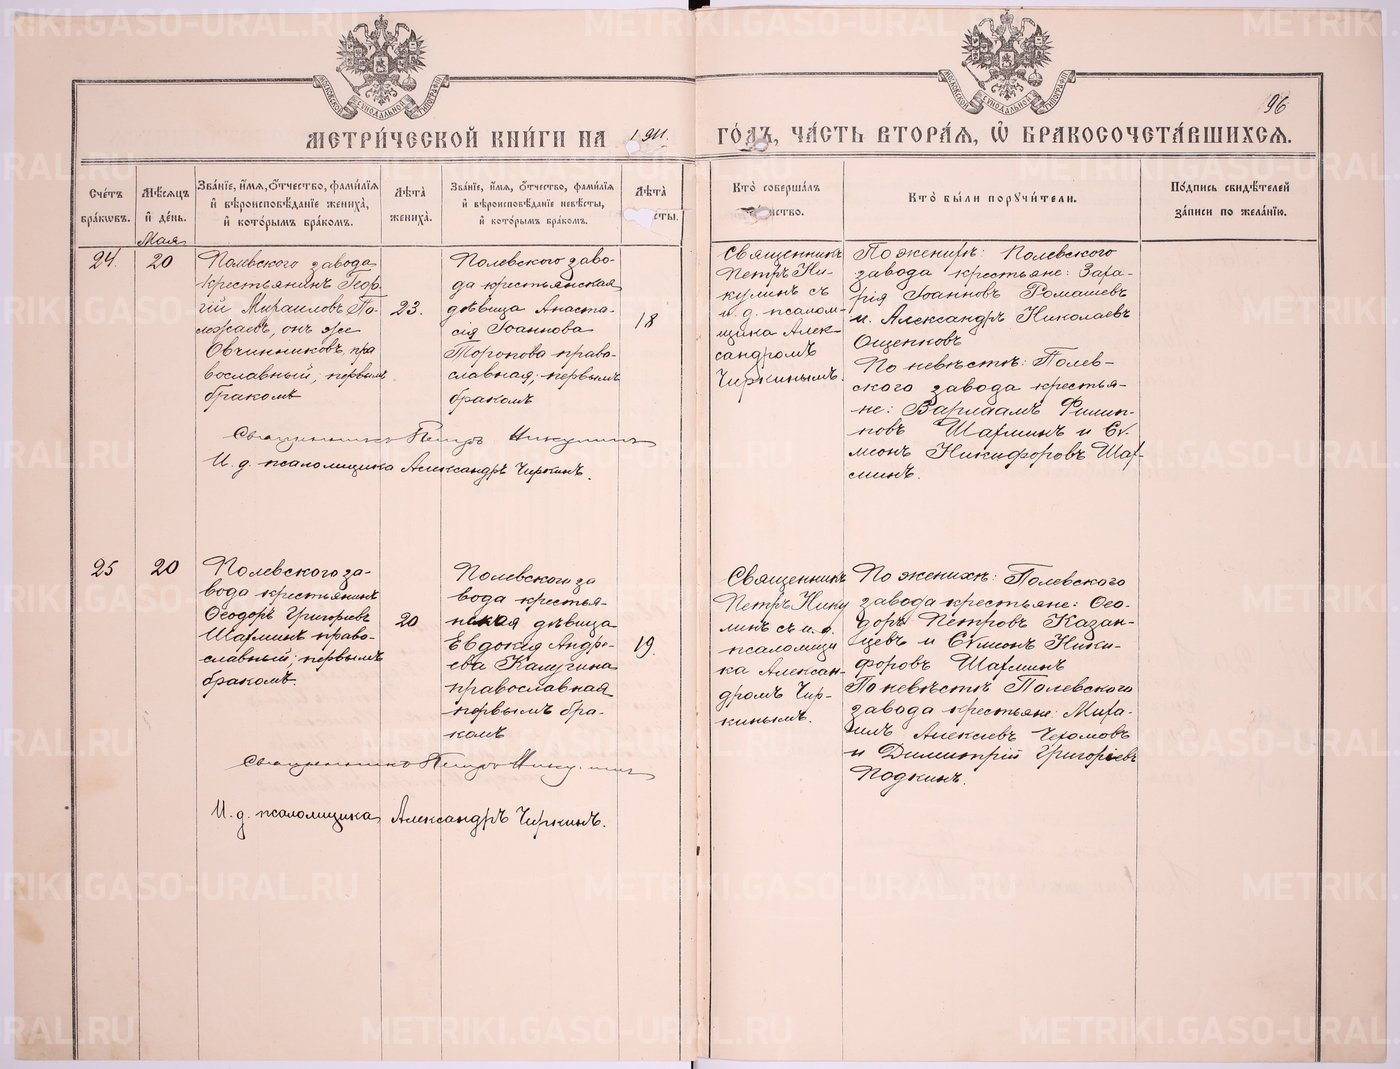 96
МЕТРИ́ЧЕСКОЙ КНИ́ГИ НА 1911. ГО́ДЪ, ЧА́СТЬ ВТОРА́Ѧ, Ѡ҆ БРАКОСОЧЕТА́ВШИХСѦ.
Сче́тъ
бра́ковъ.
Мѣ́сѧцъ
и҆ де́нь.
Зва́нїе, и҆́мѧ, ѻ҆́тчество, фами́лїѧ
и҆ вѣроисповѣ́данїе жениха̀,
и҆ кото́рымъ бра́комъ.
Лѣ́та
жениха̀.
Зва́нїе, и҆́мѧ, ѻ҆́тчество, фами́лїѧ
и҆ вѣроисповѣ́данїе невѣ́сты,
и҆ кото́рымъ бра́комъ.
Лѣ́та
сты.
Кто̀ соверша́лъ
нство.
Кто̀ бы́ли поручи́тели.
По́дпись свидѣ́телей
за́писи по жела́нїю.
Мая
24.
20
Полевского завода
крестьянинъ Геор-
гій Михаиловъ По-
лежаевъ, онъ же
Овчинниковъ, пра
вославный, первымъ
бракомъ
23.
Полевского заво-
да крестьянская
дѣвица Анаста-
сія Іоаннова
Торопова право-
славная, первымъ
бракомъ
18
Священникъ
Петръ Ни-
кулинъ съ
и. д. псалом-
щика Алек-
сандромъ
Чиркинымъ.
По женихѣ: Полевского
завода крестьяне: Заха-
рія Іоанновъ Ромашевъ
и Александръ Николаевъ
Ощепковъ
По невѣстѣ: Полев-
ского завода крестья-
не: Варлаамъ Филип-
повъ Шахминъ и Си-
меонъ Никифоровъ Шах-
минъ.
Священникъ Петръ Никулинъ
И. д. псаломщика Александръ Чиркинъ.
25
20
Полевского за-
вода крестьянинъ
Ѳеодоръ Григорьевъ
Шахминъ право-
славный, первымъ
бракомъ
20
Полевского за
вода крестья-
нская дѣвица
Евдокія Андре-
ева Калугина
православная
первымъ бра-
комъ
19.
Священникъ
Петръ Нику
линъ съ и. д.
псаломщи
ка Алексан-
дромъ Чир-
кинымъ.
По женихѣ: Полевского
завода крестьяне: Ѳео-
доръ Петровъ Казан-
цевъ и Симеонъ Ники-
форовъ Шахминъ
По невѣстѣ Полевского
завода крестьяне: Миха-
илъ Алексѣевъ Чехомовъ
и Димитрій Григорьевъ
Подкинъ.
Священникъ Петръ Никулинъ
И. д. псаломщика Александръ Чиркинъ.
METRIKI.GASO-URAL.RU